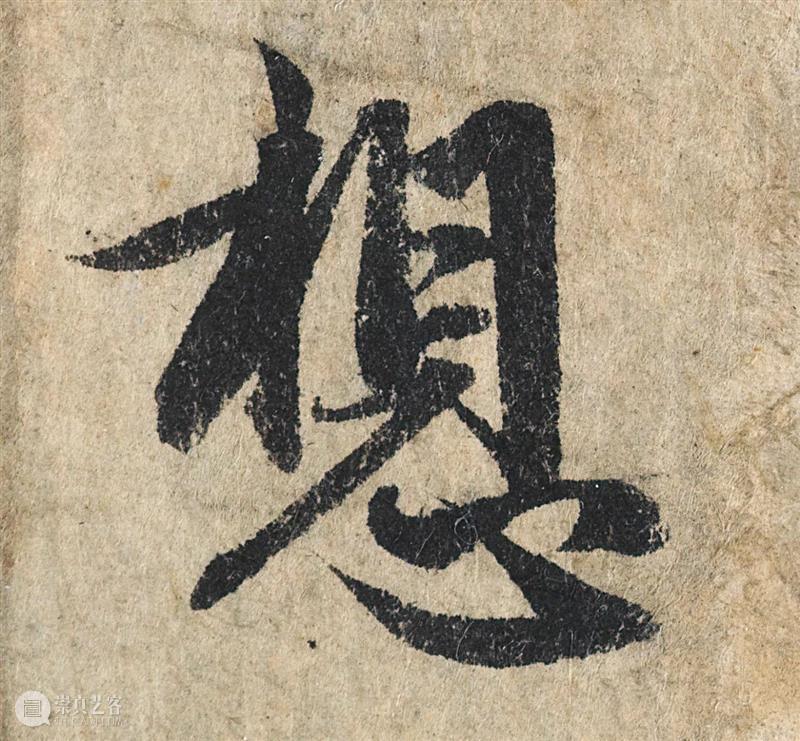 想
崇真艺客